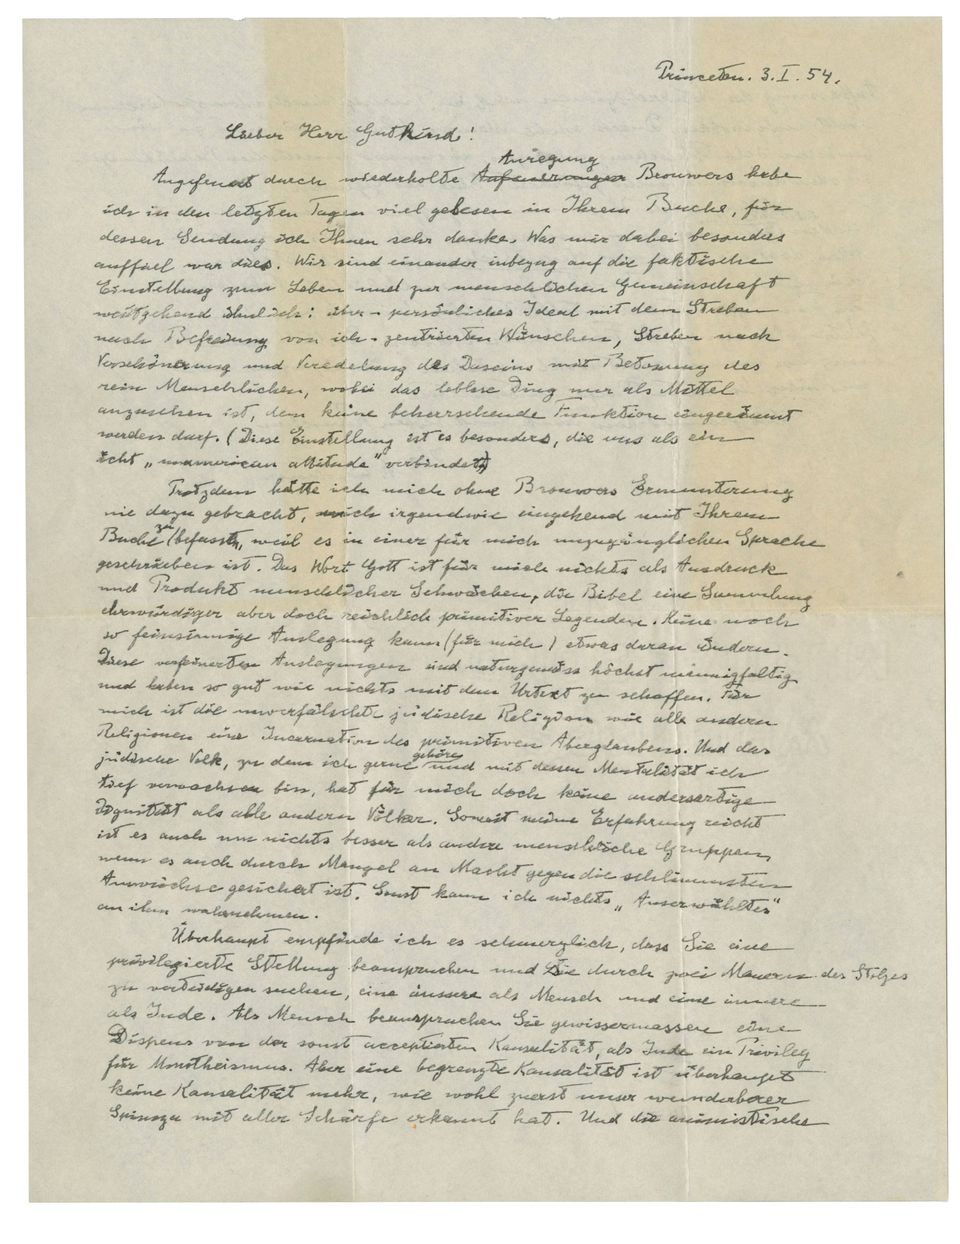 Princeton. 3. I. 54.
Lieber Herr Gutkind!
Anregung
Angefeuert durch wiederholte Aufmunterungen Brouwers habe
ich in den letzten Tagen viel gelesen in Ihrem Buche, für
dessen Sendung ich Ihnen sehr danke. Was mir dabei besonders
auffiel war dies. Wir sind einander inbezug auf die faktische
Einstellung zum Leben und zur menschlichen Gemeinschaft
weitgehend ähnlich: über-persönliches Ideal mit dem Streben
nach Befreiung von ich-zentrierten Wünschen, Streben nach
Verschönerung und Veredelung des Daseins mit Betonung des
rein Menschlichen, wobei das leblose Ding nur als Mittel
anzusehen ist, dem keine beherrschende Funktion eingeräumt
werden darf. (Diese Einstellung ist es besonders, die uns als ein
echt „unamerican attitude" verbindet)
Trotzdem hätte ich mich ohne Brouwers Ermunterung
nie dazu gebracht, mich irgendwie eingehend mit Ihrem
Buche zu befassen, weil es in einer für mich unzugänglichen Sprache
geschrieben ist. Das Wort Gott ist für mich nichts als Ausdruck
und Produkt menschlicher Schwächen, die Bibel eine Sammlung
ehrwürdiger aber doch reichlich primitiver Legenden. Keine noch
so feinsinnige Auslegung kann (für mich) etwas daran ändern.
Diese verfeinerten Auslegungen sind naturgemäss höchst mannigfaltig
und haben so gut wie nichts mit dem Urtext zu schaffen. Für
mich ist die unverfälschte jüdische Religion wie alle andern
Religionen eine Incarnation des primitiven Aberglaubens. Und das
jüdische Volk, zu dem ich gerne gehöre und mit dessen Mentalität ich
tief verwachsen bin, hat für mich doch keine andersartige
Dignität als alle andern Völker. Soweit meine Erfahrung reicht
ist es auch um nichts besser als andere menschliche Gruppen,
wenn es auch durch Mangel an Macht gegen die schlimmsten
Auswüchse gesichert ist. Sonst kann ich nichts „Auserwähltes"
an ihm wahrnehmen.
Überhaupt empfinde ich es schmerzlich, dass Sie eine
privilegierte Stellung beanspruchen und Sie durch zwei Mauern des Stolzes
zu verteidigen suchen, eine äussere als Mensch und eine innere
als Jude. Als Mensch beanspruchen Sie gewissermassen einen
Dispens von der sonst acceptierten Kausalität, als Jude ein Privileg
für Monotheismus. Aber eine begrenzte Kausalität ist überhaupt
keine Kausalität mehr, wie wohl zuerst unser wunderbarer
Spinoza mit aller Schärfe erkannt hat. Und die animistische